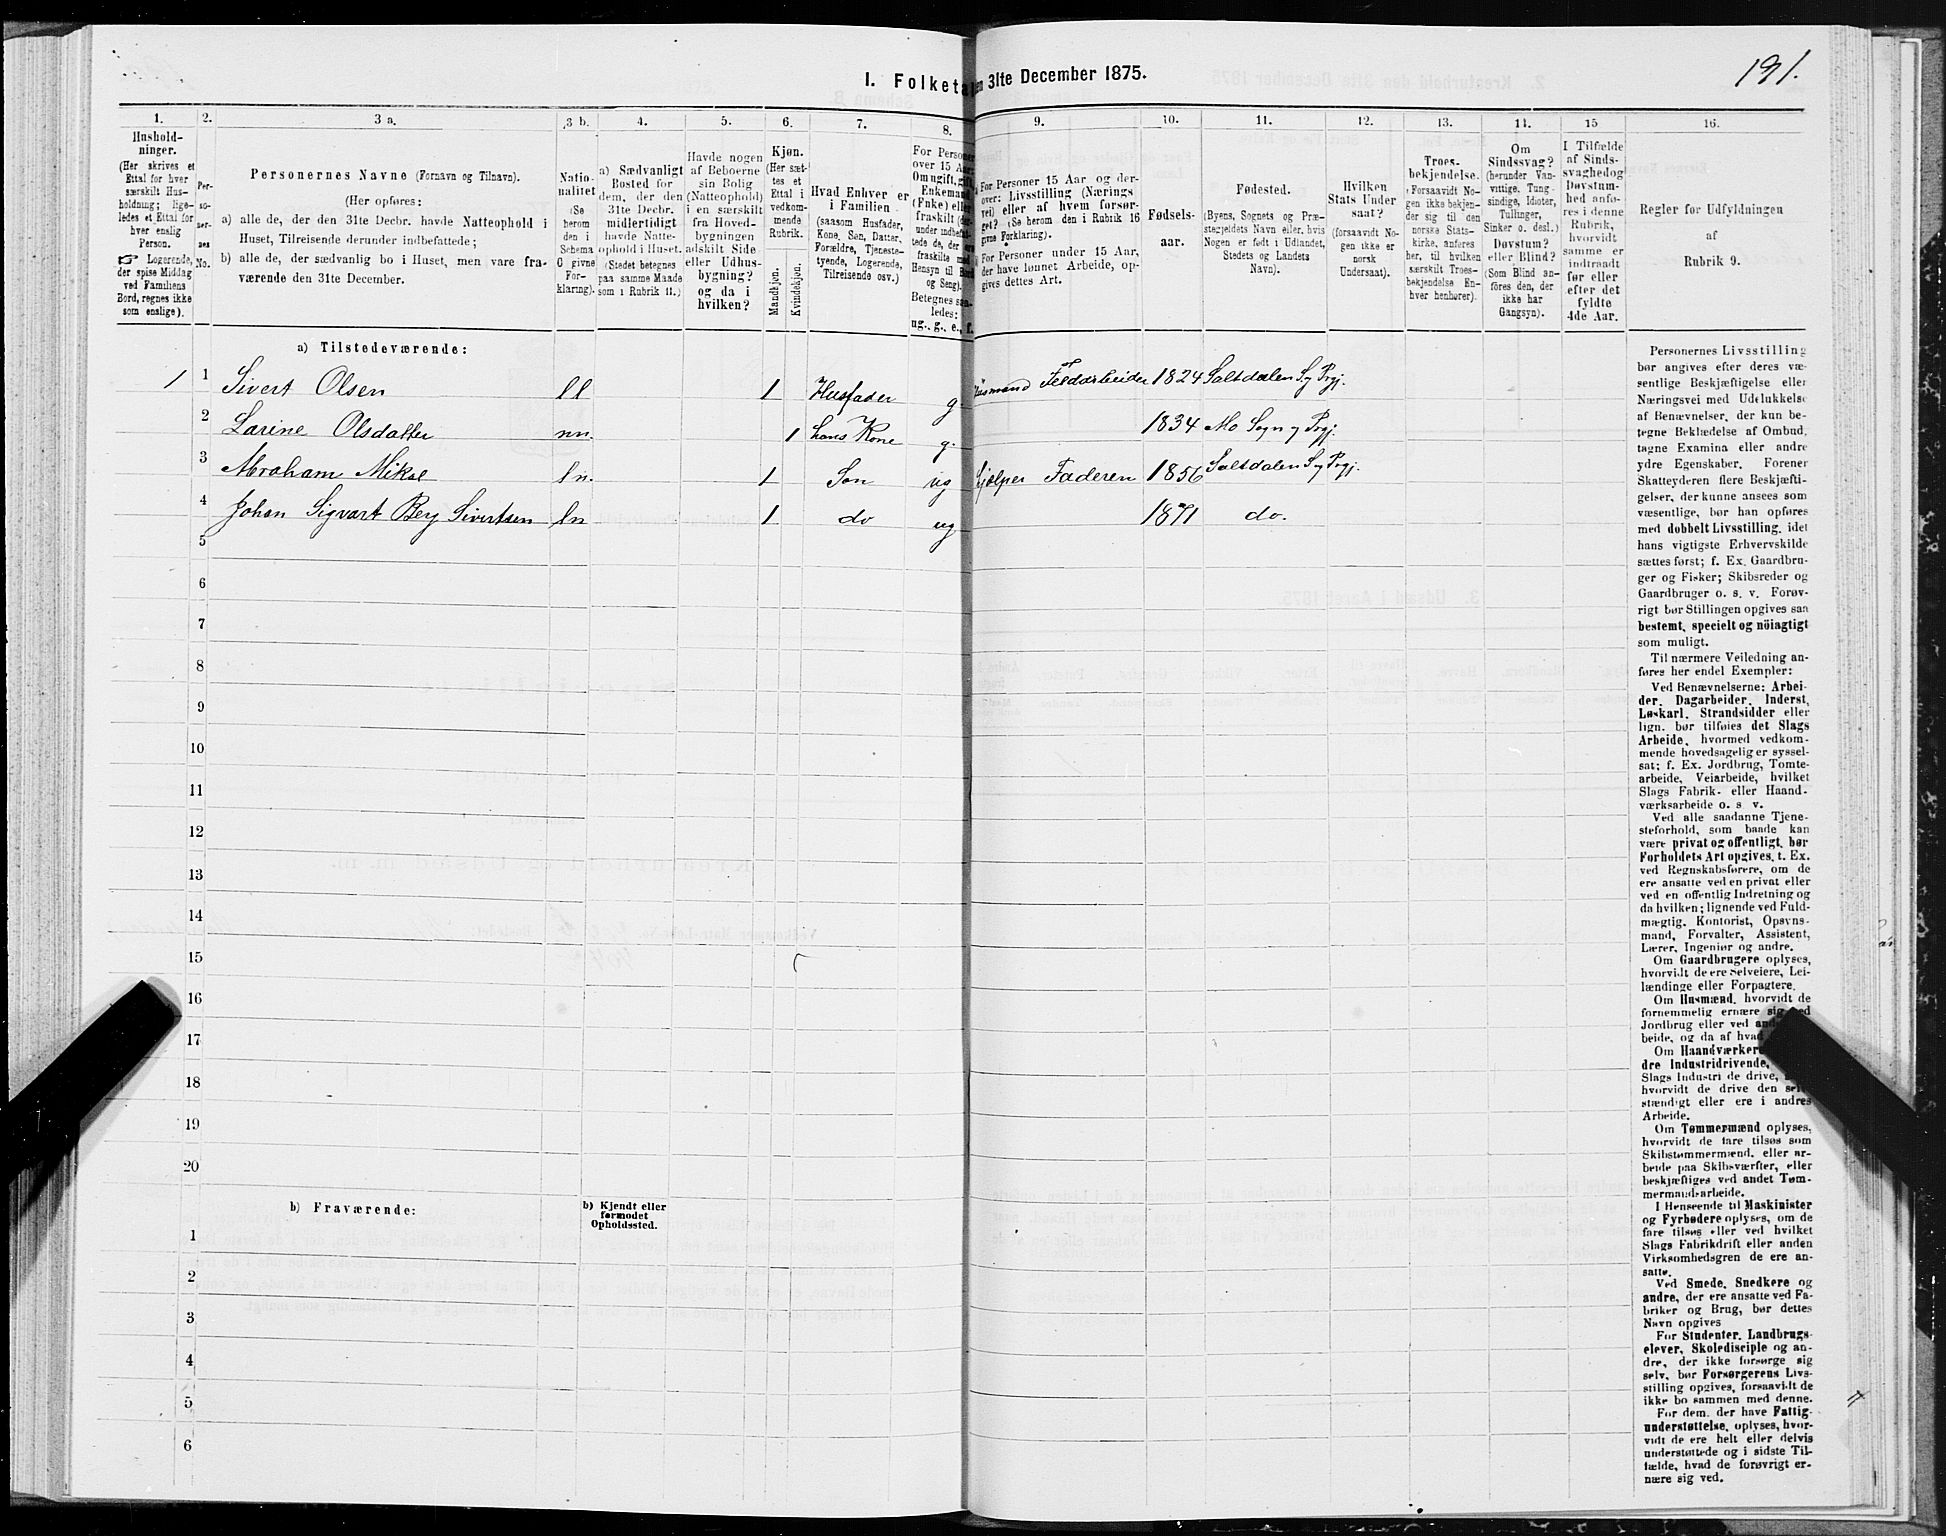 191.
I. Folketa en 31te December 1875.
1. 2. 3 a. 3 b. 4. 5. 6. 7. 8. 9. 10. 11. 12. 13. 14. 15 16.
Hushold-
ninger.
(Her skrives et
Ettal for hver
særskilt Hus-
holdning; lige-
ledes et Ettal for
hver enslig
Person.
☞ Logerende,
der spise Middag
ved Familiens
Bord, regnes ikke
som enslige).
Per-
so-
ner-
nes
No.
Personernes Navne (Fornavn og Tilnavn).
(Her opføres:
a) alle de, der den 31te Decbr. havde Natteophold i
Huset, Tilreisende derunder indbefattede;
b) alle de, der sædvanlig bo i Huset, men vare fra-
værende den 31te December.
Natio-
nalitet
(Se
herom
den i
Schema
C givne
For-
klaring).
a) Sædvanligt
Bosted for
dem, der den
31te Decbr.
midlertidigt
havde Natte-
ophold i Huset.
(Stedet betegnes
paa samme Maade
som i Rubrik 11.)
Havde nogen
af Beboerne
sin Bolig
(Natteophold)
i en særskilt
fra Hoved-
bygningen
adskilt Side
eller Udhus-
bygning?
og da i
hvilken?
Kjøn.
(Her sæt-
tes et
Ettal i
vedkom-
mende
Rubrik.
Mandkjøn.
Kvindekjøn.
Hvad Enhver er
i Familien
(saasom Husfader,
Kone, Søn, Datter,
Forældre, Tjeneste-
tyende, Logerende,
Tilreisende osv.)
For Persone
over 15 Aar
Om ugift, gift
Enkemand
(Fnke) eller
fraskilt (der-
under indbefat-
tede de, der ere
fraskilte med
Hensyn til Bord
og Seng).
Betegnes saa-
ledes:
ug., g., e., f.
For Personer 15 Aar og der-
over: Livsstilling (Nærings
vei) eller af hvem forsør-
get? (Se herom den i Rubrik 16
givne Forklaring).
For Personer under 15 Aar,
der have lønnet Arbeide, op-
gives dettes Art.
Fødsels-
aar.
Fødested.
(Byens, Sognets og Præ-
stegjeldets Navn eller, hvis
Nogen er født i Udlandet,
Stedets og Landets
Navn).
Hvilken
Stats Under
saat?
(forsaavidt No-
gen ikke er
norsk
Undersaat).
Troes-
bekjendelse.
(Forsaavidt No-
gen ikke bekjen-
der sig til den
norske Stats-
kirke, anføres
her, til hvilken
særskilt Troes-
bekjendelse En-
hver henhører).
Om
Sindssvag?
(herunder Van-
vittige, Tung-
sindige, Idioter,
Tullinger,
Sinker o. desl.)
Døvstum?
eller Blind?
(Som Blind an-
føres den, der
ikke har
Gangsyn).
I Tilfælde
af Sinds-
svaghedog
Døvstum-
hed anfø-
res i denne
Rubrik,
hvorvidt
samme er
indtraadt
før eller
efter det
fyldte
4de Aar.
Regler før Udfyldningen
af
Rubrik 9.
a) Tilstedeværende:
1 1 Sivert Olsen ll 1 Husfader g. Husmand Feldarbeider 1824 Saltdalen S. y Prgj.
2 Larine Olsdatter nn. 1 hans Kone g. 1834 Mo Sogn y Prgj.
3 Abraham Mikal ln. 1 Søn ug hjælper Faderen 1856 Saltdalen S y Prgj.
4 Johan Sigvart Berg Sivertsen ln 1 do ug 1871 do.
5
6
7
8
9
10
11
12
13
14
15
16
17
18
19
20
b) Fraværende:
b) Kjendt eller
formodet
Opholdssted.
1
2
3
4
5
6
Personernes Livsstilling
bør angives efter deres væ-
sentlige Beskjæftigelse eller
Næringsvei med Udelukkelse
af Benævnelser, der kun be-
tegne Beklædelse af Ombud,
tagne Examina eller andre
ydre Egenskaber. Forener
Skatteyderen flere Beskjæfti-
gelser, der kunne ansees som
væsentlige, bør han opføres
med dobbelt Livsstilling, idet
hans vigtigste Erhvervskilde
sættes først; f. Ex. Gaardbru-
ger og Fisker; Skibsreder og
Gaardbruger o. s. v. Forøv-
rigt bør Stillingen opgives saa
bestemt, specielt og nöiagtigt
som muligt.
Til nærmere Veiledning an-
føres her endel Exempler:
Ved Benævnelserne: Arbei-
der, Dagarbeider, Inderst,
Løskarl, Strandsidder eller
lign. bør tilføies det Slags
Arbeide, hvormed vedkom-
mende hovedsagelig er syssel-
sat; f. Ex. Jordbrug, Tomte-
arbeide, Veiarbeide, hvilket
Slags Fabrik- eller Haand-
værksarbeide o. s v.
Ved alle saadanne Tjene-
steforhold, som baade kan
være privat og offentligt, bør
Forholdets Art opgives, t. Ex.
ved Regnskabsførere, om de
ere ansatte ved en privat eller
ved en offentlig Indretning og
da hvilken; lignende ved Fuld-
mægtig, Kontorist, Opsyns-
mand, Forvalter, Assistent,
Lærer, Ingeniør og andre.
Om Gaardbrugere oplyses,
hvorvidt de ere Selveiere, Lei-
lændinge eller Forpagtere.
Om Husmænd, hvorvidt de
fornemmelig ernære sig ved
Jordbrug eller ved an
beide, og da af hvad
Om Haandværkere
dre Industridrivende,
Slags Industri de drive,
hvorvidt de drive den sel
stændigt eller ere i andres
Arbeide.
Om Tømmermænd oplyses,
hvorvidt de fare tilsøs som
Skibstømmermænd, eller ar-
beide paa Skibsværfter, eller
beskjæftiges ved andet Tøm-
mermandsarbeide.
I Henseende til Maskinister
og Fyrbødere oplyses, om de
fare tilsøs eller ved hvilket
Slags Fabrikdrift eller anden
Virksomhedsgren de ere an-
satte.
Ved Smede, Snedkere og
andre, der ere ansatte ved Fa-
briker og Brug, bør dettes
Navn opgives
For Studenter, Landbrugs-
elever, Skoledisciple og an-
dre, der ikke forsørge sig
selv, bør Forsørgerens Livs-
stilling opgives, forsaavidt de
ikke bo sammen med denne.
For dem, der have Fattig-
understøttelse, oplyses, hvor-
vidt de ere helt eller delvis
understøttede og i sidste Til-
fælde, hvad de forøvrigt er-
nære sig ved.